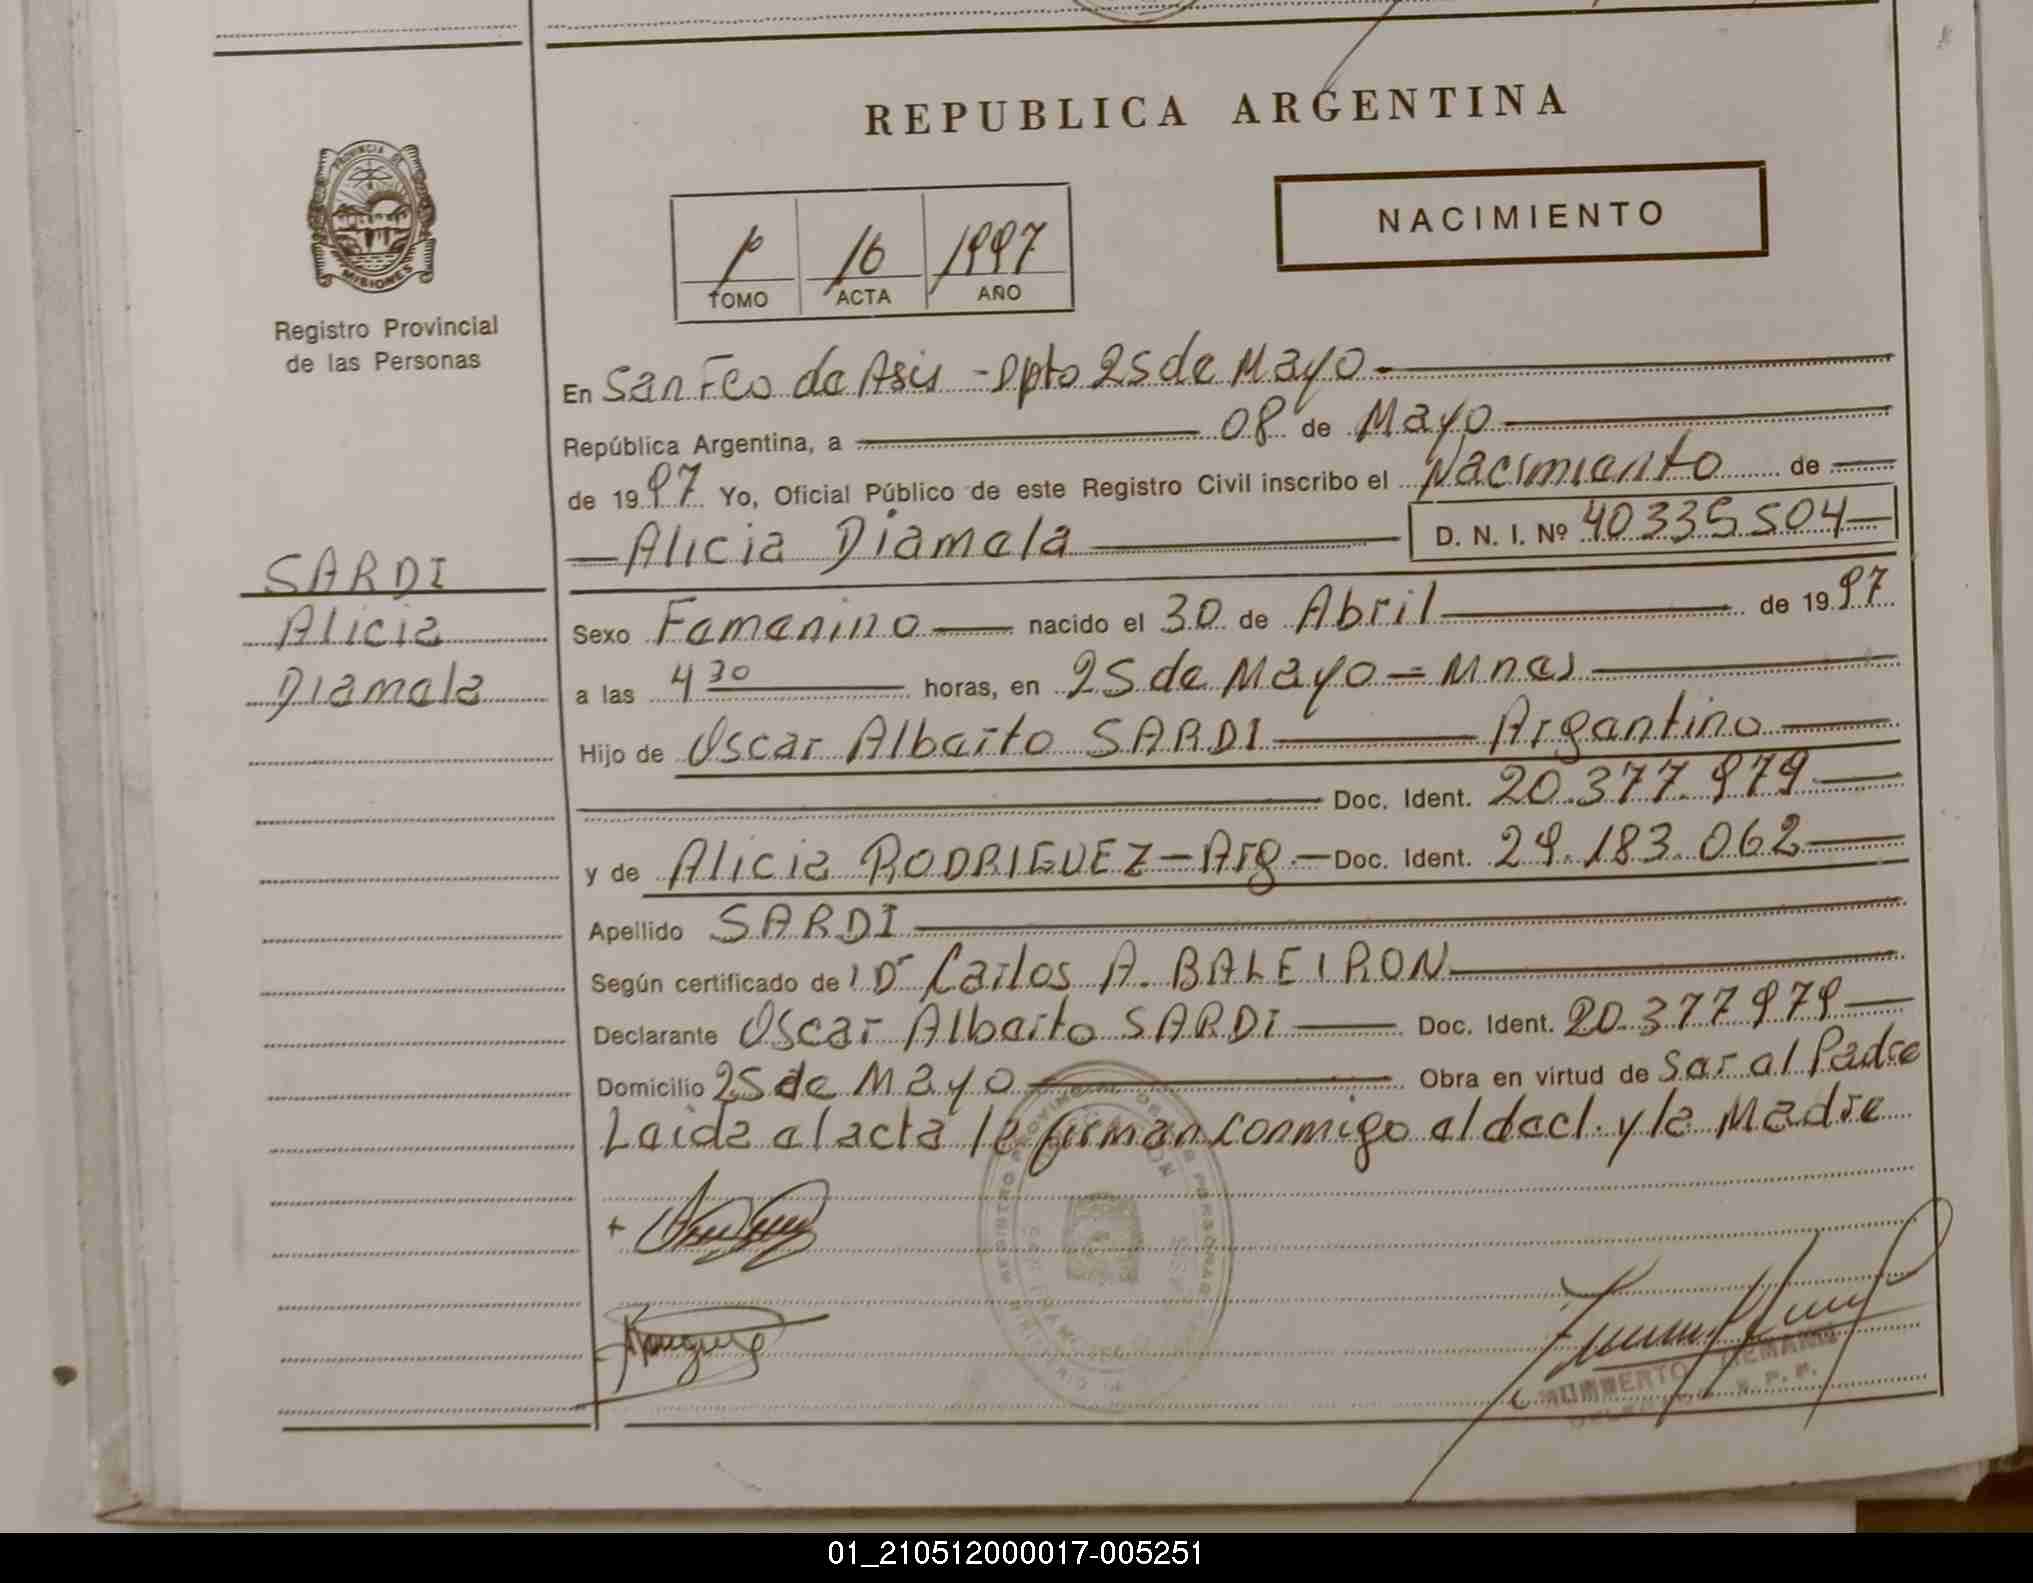 REPUBLICA ARGENTINA
PROVINCIA DE
MISIONES
Registro Provincial
de las Personas
NACIMIENTO
1º 16 1997
TOMO ACTA AÑO
En San Fco de Asis - Dpto 25 de Mayo
República Argentina, a 08 de Mayo
de 1997 Yo, Oficial Público de este Registro Civil inscribo el Nacimiento de
Alicia Diamela D. N. I. Nº 40335504
SARDI
Alicia
Diamela
Sexo Femenino nacido el 30 de Abril de 1997
a las 4 30 horas, en 25 de Mayo = Mnes
Hijo de Oscar Alberto SARDI Argentino
Doc. Ident. 20.377.979
y de Alicia RODRIGUEZ - Arg. - Doc. Ident. 29.183.062
Apellido SARDI
Según certificado de l Dr Carlos A. BALEIRON
Declarante Oscar Alberto SARDI Doc. Ident. 20.377979
Domicilio 25 de Mayo Obra en virtud de Ser el Padre
Leida el acta la firman conmigo el decl. y la Madre
HUMBERTO
01_210512000017-005251